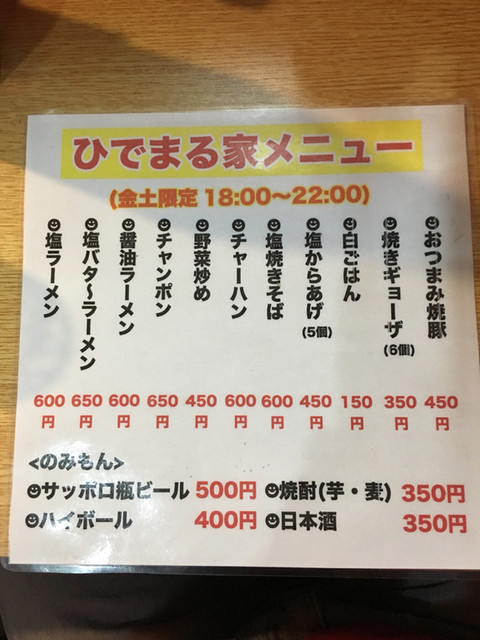 ひでまる家メニュー
(金土限定 18:00〜22:00)
☻おつまみ焼豚 450円
☻焼きギョーザ(6個) 350円
☻白ごはん 150円
☻塩からあげ(5個) 450円
☻塩焼きそば 600円
☻チャーハン 600円
☻野菜炒め 450円
☻チャンポン 650円
☻醤油ラーメン 600円
☻塩バタ〜ラーメン 650円
☻塩ラーメン 600円
<のみもん>
☻サッポロ瓶ビール 500円 ☻焼酎(芋・麦) 350円
☻ハイボール 400円 ☻日本酒 350円